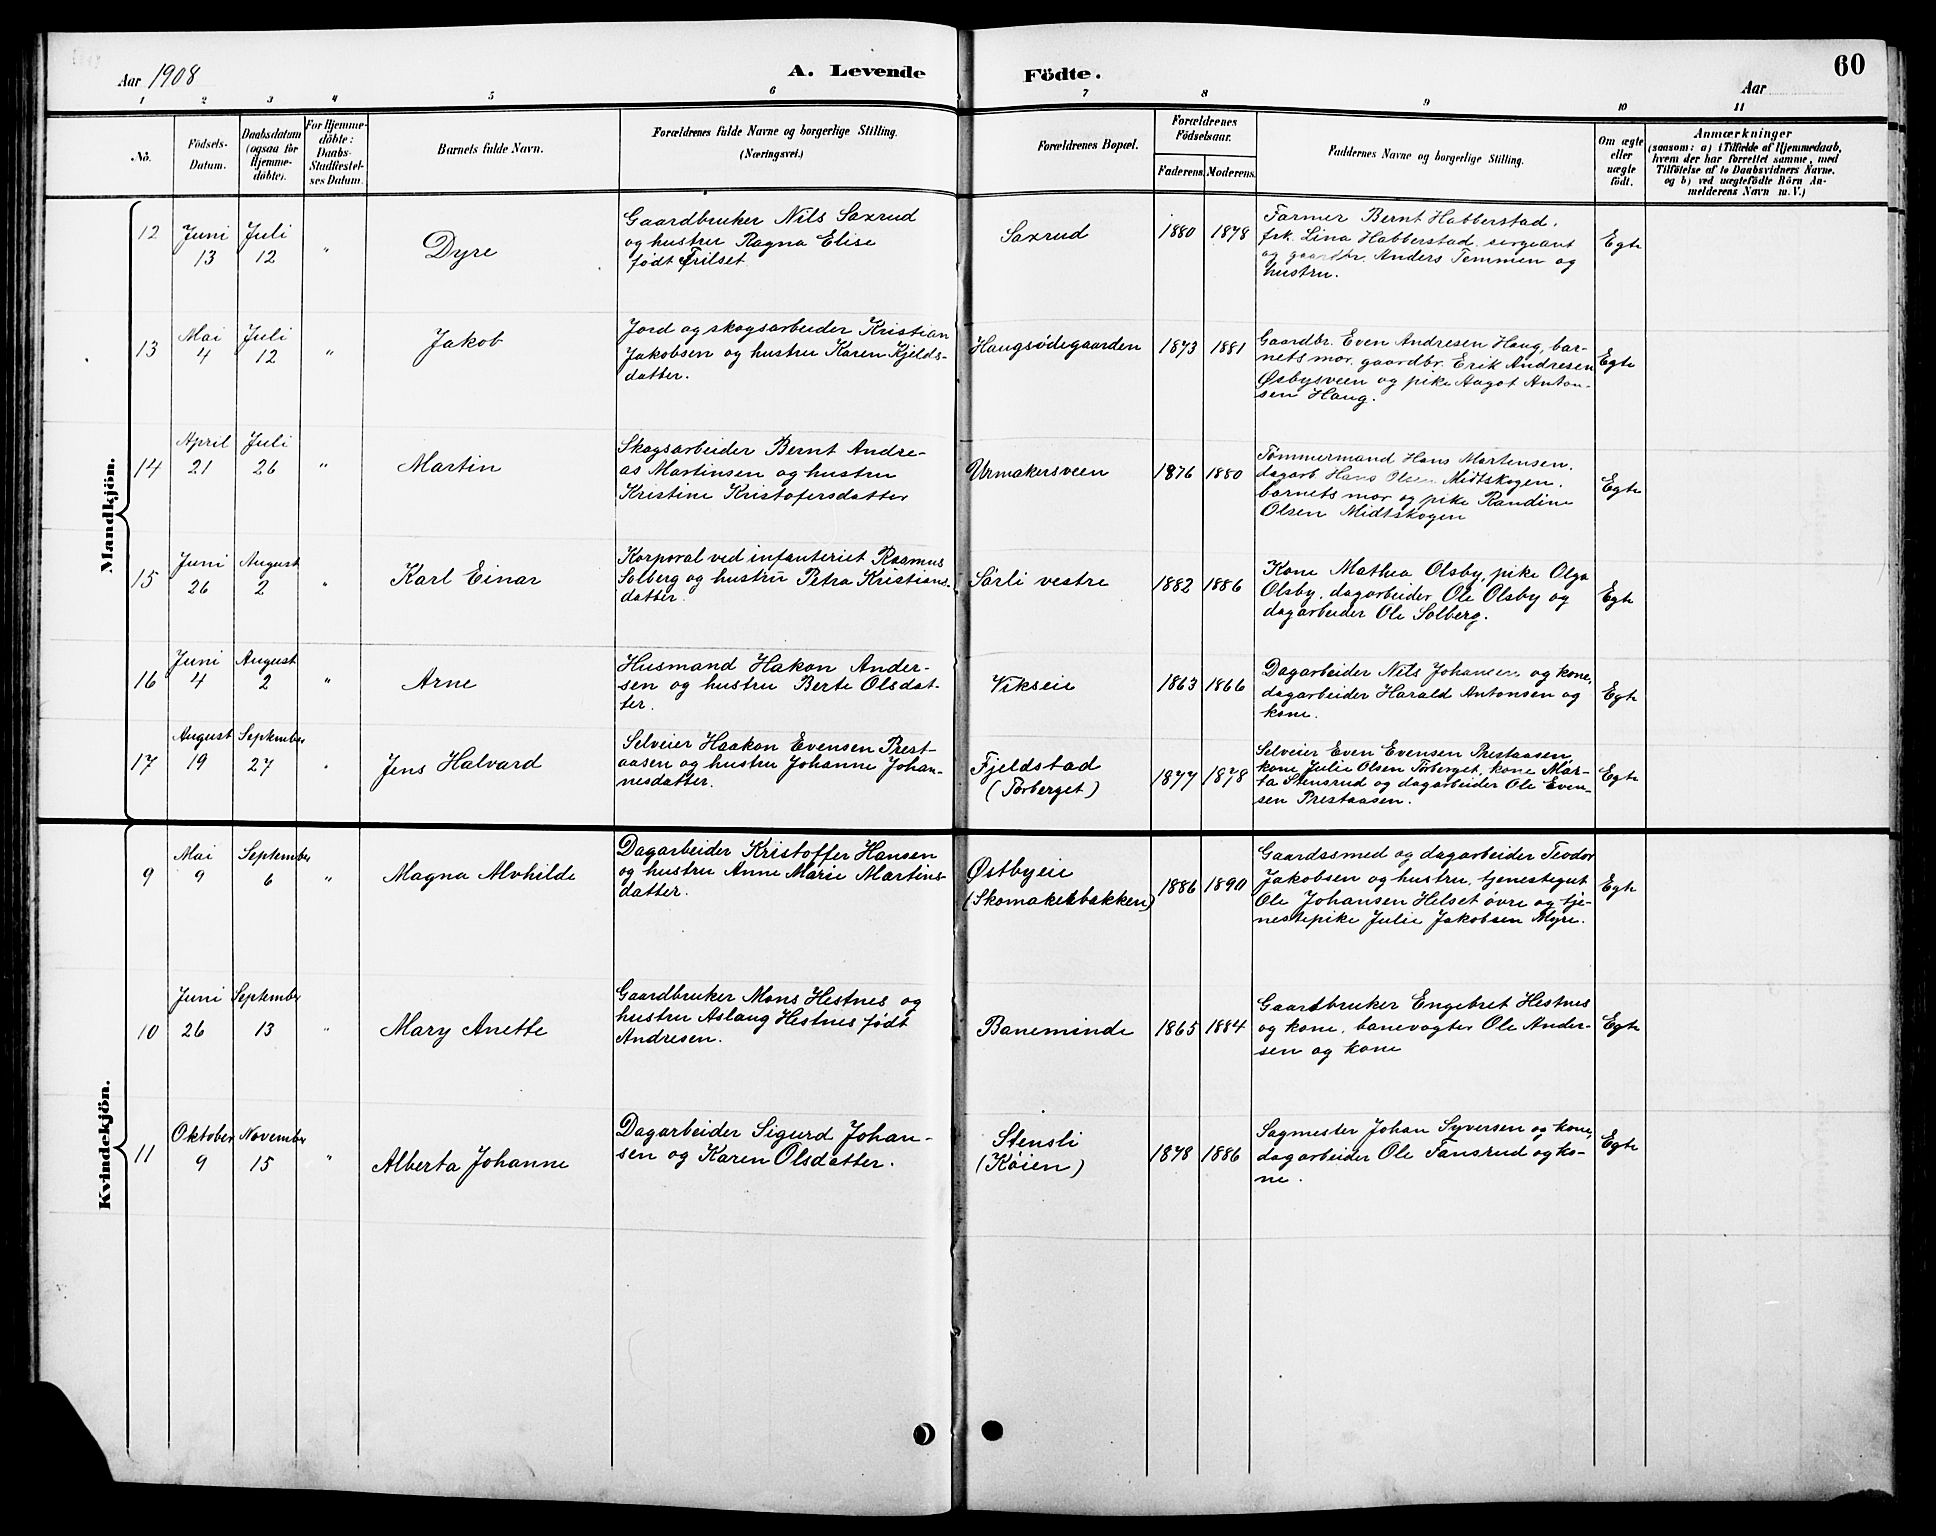 Aar 1908
A. Levende Födte.
Aar
60
1 2 3 4 5 6 7 8 9 10 11
No.
Födsels-
Datum.
Daabsdatum
(ogsaa for
Hjemme-
döbte).
For Hjemme-
döbte:
Daabs-
Stadfæstel-
ses Datum.
Barnets fulde Navn.
Forældrenes fulde Navne og borgerlige Stilling.
(Næringsvei.)
Forældrenes Bopæl.
Forældrenes
Födselsaar.
Faderens. Moderens.
Faddernes Navne og borgerlige Stilling.
Om ægte
eller
uægte
födt.
Anmærkninger
(saasom: a) i Tilfælde af Hjemmedaab,
hvem der har forrettet samme, med
Tilföielse af to Daabsvidners Navne.
og b) ved uægtefödte Börn An-
melderens Navn m. V.)
Mandkjön.
12
Juni
13
Juli
12
"
Dyre
Gaardbruker Nils Saxrud
og hustru Ragna Elise
født Frilset.
Saxrud
1880
1878
Farmer Bernt Habberstad,
frk. Lina Habberstad, sergeant
og gaardbr. Anders Temmen og
hustru.
Egte
13
Mai
4
Juli
12
"
Jakob
Jord og skogsarbeider Kristian
Jakobsen og hustru Karen Kjelds-
datter.
Haugsødegaarden
1873
1881
Gaardbr. Even Andresen Haug, bar-
nets mor, gaardbr. Erik Andresen
Østbysveen og pike Aagot Anton-
sen Haug.
Egte
14
April
21
Juli
26
"
Martin
Skogsarbeider Bernt Andre-
as Martinsen og hustru
Kristine Kristofersdatter
Urmakersveen
1876
1880
Tømmermand Hans Martensen,
dagarb Hans Olsen Midtskogen,
barnets mor og pike Randine
Olsen Midtskogen
Egte
15
Juni
26
August
2
"
Karl Einar
Korporal ved infanteriet Rasmus
Solberg og hustru Petra Kristians-
datter.
Sørli vestre
1882
1886
Kone Mathea Olsby, pike Olga
Olsby, dagarbeider Ole Olsby og
dagarbeider Ole Solberg.
Egte
16
Juni
4
August
2
"
Arne
Husmand Hakon Ander-
sen og hustru Berte Olsdat-
ter.
Vikseie
1863
1866
Dagarbeider Nils Johansen og kone,
dagarbeider Harald Antonsen og
kone.
Egte
17
August
19
September
27
"
Jens Halvard
Selveier Haakon Evensen Prest-
aasen og hustru Johanne Johan-
nesdatter.
Fjeldstad
(Torberget)
1877
1878
Selveier Even Evensen Prestaasen,
kone Julie Olsen Torberget, kone Mar-
ta Stensrud og dagarbeider Ole Even-
sen Prestaasen.
Egte
Kvindekjön.
9
Mai
9
September
6
"
Magna Alvhilde
Dagarbeider Kristoffer Hansen
og hustru Anne Marie Martins-
datter.
Østbyeie
(Skomakerbakken)
1886
1890
Gaardssmed og dagarbeider Teodor
Jakobsen og hustru, tjenestegut
Ole Johansen Helset øvre og tje-
nestepike Julie Jakobsen Myre.
Egte
10
Juni
26
September
13
"
Mary Anette
Gaardbruker Mons Hestnes og
hustru Aslaug Hestnes født
Andresen.
Baneminde
1865
1884
Gaardbruker Engebret Hestnes
og kone, banevogter Ole Ander-
sen og kone
Egte
11
Oktober
9
November
15
"
Alberta Johanne
Dagarbeider Sigurd Johan-
sen og Karen Olsdatter.
Stensli
(Køien)
1878
1886
Sagmester Johan Syversen og kone,
dagarbeider Ole Fansrud og ko-
ne.
Egte